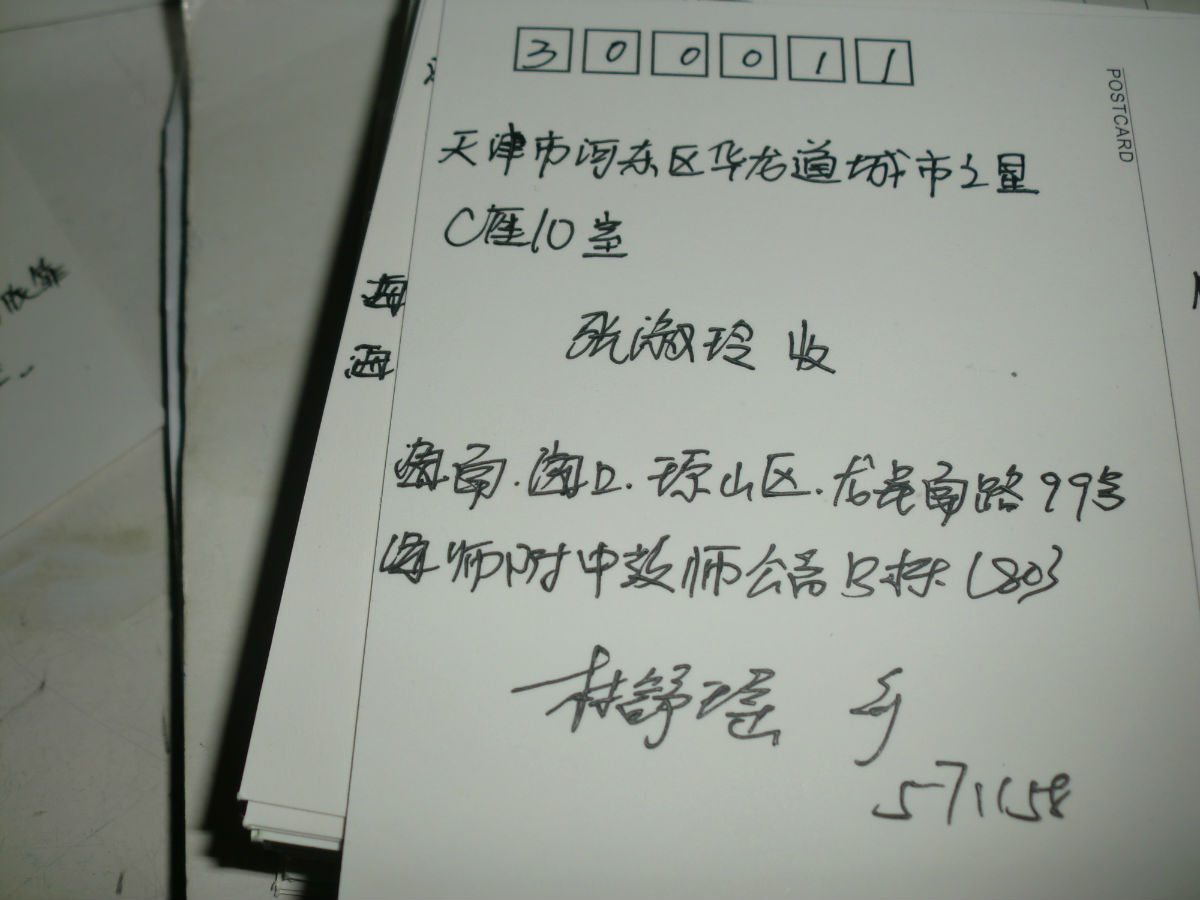 300011
POSTCARD
天津市河东区华龙道城市之星
C座10室
张淑玲 收
海南.海口.琼山区.龙昆南路99号
海师附中教师公寓B栋1803
林舒瑶 寄
571158
海
海